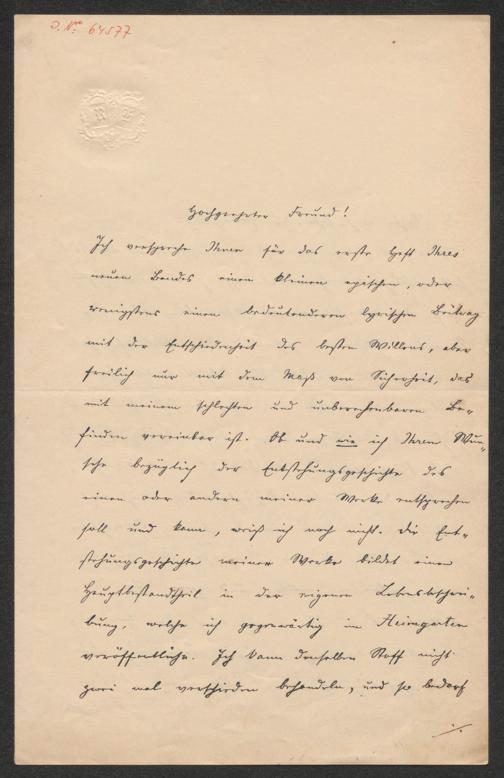 J. No: 64577
Hochgeehrter Freund!
Ich verspreche Ihnen für das erste Heft Ihres
neuen Bandes einen kleinen epischen, oder
wenigstens einen bedeutenderen lyrischen Beitrag
mit der Entschiedenheit des besten Willens, aber
freilich nur mit dem Maß von Sicherheit, das
mit meinem schlechten und unberechenbaren Be-
finden vereinbar ist. Ob und wie ich Ihrem Wun-
sche bezüglich der Entstehungsgeschichte des
einen oder andern meiner Werke entsprechen
soll und kann, weiß ich noch nicht. Die Ent-
stehungsgeschichte meiner Werke bildet einen
Hauptbestandtheil in der eigenen Lebensbeschrei-
bung, welche ich gegenwärtig im Heimgarten
veröffentliche. Ich kann denselben Stoff nicht
zwei mal verschieden behandeln, und so bedarf
./.